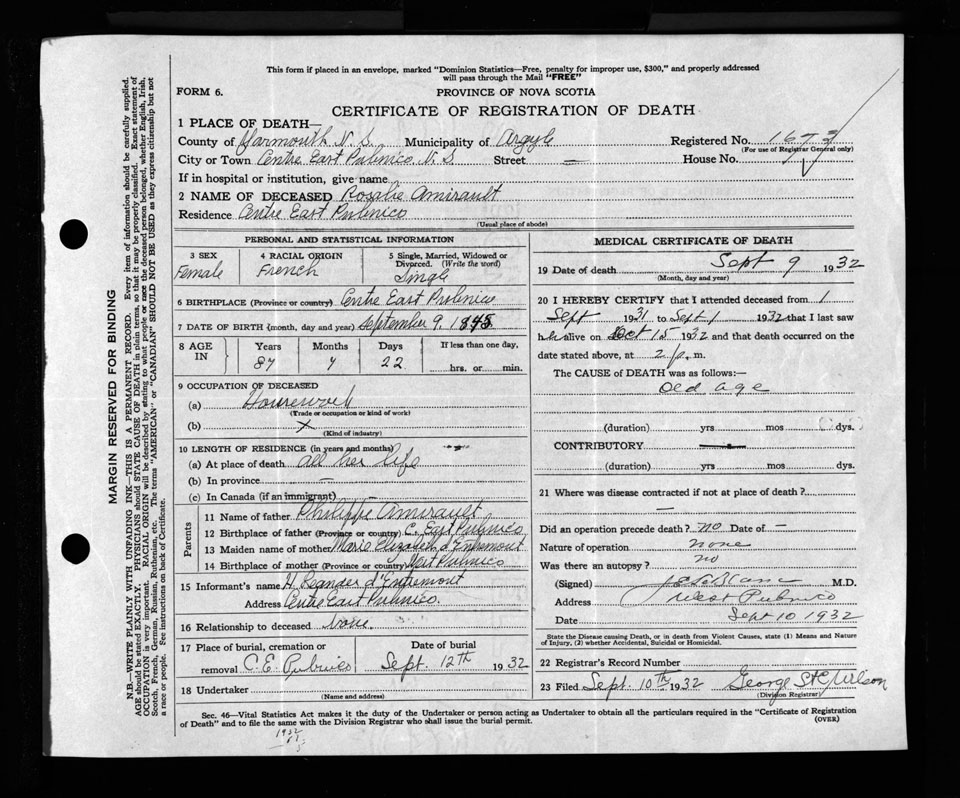 This form if placed in an envelope, marked "Dominion Statistics—Free, penalty for improper use, $300," and properly addressed
will pass through the Mail "FREE"
FORM 6.
PROVINCE OF NOVA SCOTIA
CERTIFICATE OF REGISTRATION OF DEATH
1 PLACE OF DEATH—
County of Yarmouth N. S. Municipality of Argyle Registered No. 1673
(For use of Registrar General only)
City or Town Centre East Pubnico N. S Street — House No.
If in hospital or institution, give name
2 NAME OF DECEASED Rosalie Amirault
Residence Centre East Pubnico
(Usual place of abode)
PERSONAL AND STATISTICAL INFORMATION
3 SEX
Female
4 RACIAL ORIGIN
French
5 Single, Married, Widowed or
Divorced. (Write the word)
Single
6 BIRTHPLACE (Province or country) Centre East Pubnico
7 DATE OF BIRTH (month, day and year) September 9, 1845
8 AGE IN
Years Months Days If less than one day,
87 22 hrs. or min.
9 OCCUPATION OF DECEASED
(a) Housework
(Trade or occupation or kind of work)
(b) X
(Kind of industry)
10 LENGTH OF RESIDENCE (in years and months)
(a) At place of death all her life
(b) In province —
(c) In Canada (if an immigrant) —
Parents
11 Name of father Philippe Amirault
12 Birthplace of father (Province or country) C. East Pubnico
13 Maiden name of mother Marie Elizabeth d'Entremont
14 Birthplace of mother (Province or country) West Pubnico
15 Informant's name H. Leander d'Entremont
Address Centre East Pubnico.
16 Relationship to deceased None.
17 Place of burial, cremation or removal C. E. Pubnico
Date of burial
Sept. 12th 1932
18 Undertaker
(Name and address)
MEDICAL CERTIFICATE OF DEATH
19 Date of death Sept 9 1932
(Month, day and year)
20 I HEREBY CERTIFY that I attended deceased from 1
Sept 1931 to Sept 1 1932 that I last saw
her alive on Oct 15 1932 and that death occurred on the
date stated above, at 2 p. m.
The CAUSE of DEATH was as follows:—
Old age
(duration) yrs mos dys.
CONTRIBUTORY
(duration) yrs mos dys.
21 Where was disease contracted if not at place of death?
—
Did an operation precede death? no Date of —
Nature of operation none
Was there an autopsy? no
(Signed) M.D.
Address West Pubnico
Date Sept 10 1932
State the Disease causing Death, or in death from Violent Causes, state (1) Means and Nature
of Injury, (2) whether Accidental, Suicidal or Homicidal.
22 Registrar's Record Number
23 Filed Sept. 10th 1932 George
(Division Registrar)
Sec. 46—Vital Statistics Act makes it the duty of the Undertaker or person acting as Undertaker to obtain all the particulars required in the "Certificate of Registration
of Death" and to file the same with the Division Registrar who shall issue the burial permit.
(OVER)
1932
MARGIN RESERVED FOR BINDING
N.B.—WRITE PLAINLY WITH UNFADING INK—THIS IS A PERMANENT RECORD. Every item of information should be carefully supplied.
AGE should be stated EXACTLY. PHYSICIANS should STATE CAUSE OF DEATH in plain terms, so that it may be properly classified. Exact statement of
OCCUPATION is very important. RACIAL ORIGIN will be described by stating to what people or race the deceased person belonged, whether English, Irish,
Scotch, French, German, Russian, Ruthenian, etc. The terms "AMERICAN" or "CANADIAN" SHOULD NOT BE USED as they express citizenship but not
a race or people. See instructions on back of Certificate.